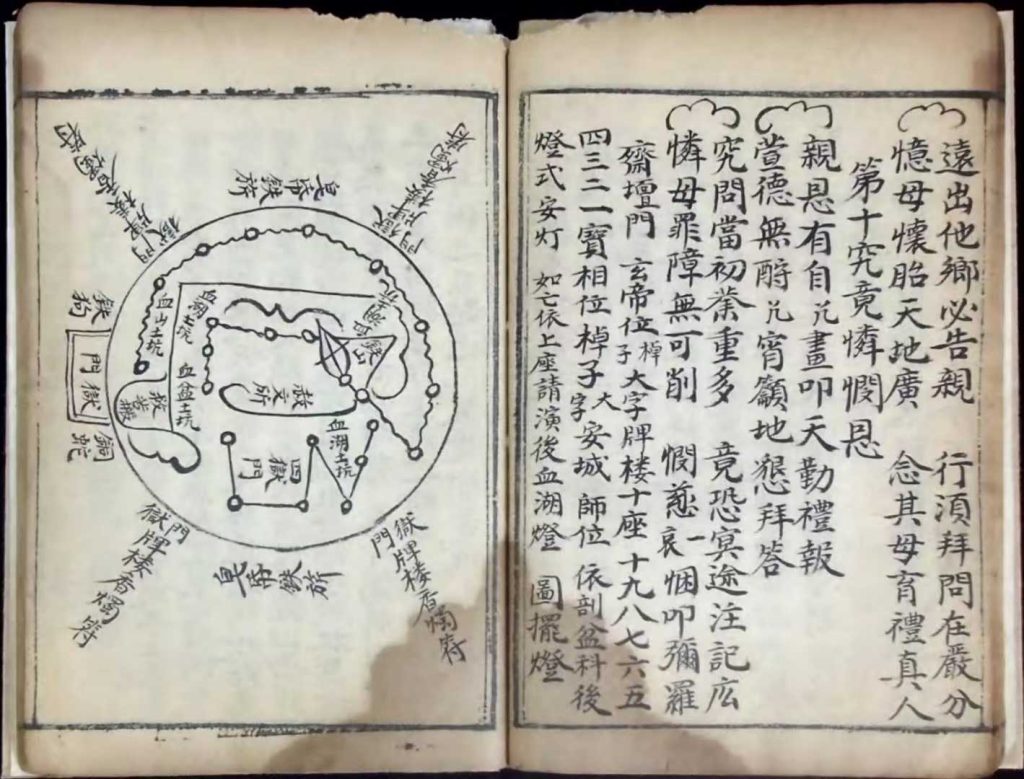 遠出他鄉必告親　行須拜問在嚴分
憶母懷胎天地廣　念其母育禮真人
第十究竟憐憫恩
親恩有自兄畫叩天勤禮報
萱德無酧兄宵籲地懇拜答
究問當初業重多　竟恐冥途注記広
憐母罪障無可削　憫慈一哀悃叩彌羅
齋壇門　玄帝位棹子大字牌楼十座十九八七六五
四三二一寶相位棹子大字安城　師位　依剖盆科後
燈式安灯　如亡依上座請演後血湖燈　圖擺燈
獄門牌楼香燭符
門獄牌楼香燭符
血湖土坑
血盆土坑
血湖土坑
救文所
四獄門
鉄狗
門獄
銅蛇